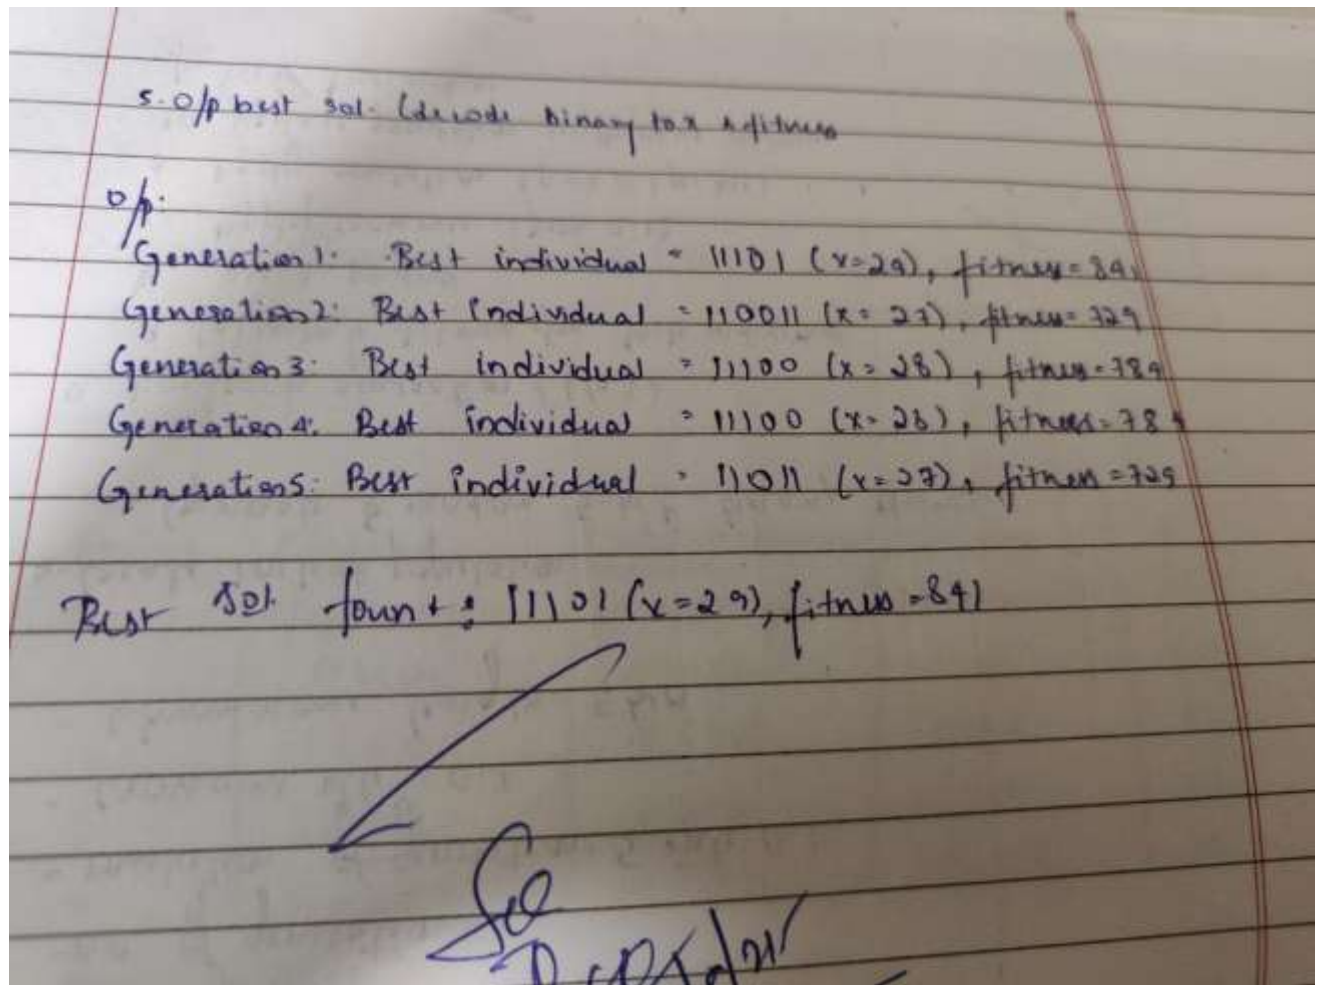 5. O/p best sol. (decode binary to x & fitness
O/p:
Generation 1: Best individual = 11101 (x=29), fitness = 841
Generation 2: Best individual = 110011 (x = 27), fitness = 729
Generation 3: Best individual = 11100 (x = 28), fitness = 784
Generation 4: Best individual = 11100 (x = 28), fitness = 784
Generation 5: Best individual = 11011 (x = 27), fitness = 729
Best sol. fount : 11101 (x = 29), fitness = 841